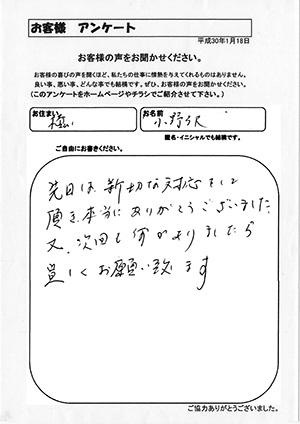 お客様 アンケート
平成30年1月18日
お客様の声をお聞かせください。
お客様の喜びの声を聞くほど、私たちの仕事に情熱を与えてくれるものはありません。
良い事、悪い事、どんな事でも結構です。ぜひ、お客様の声をお聞かせください。
(このアンケートをホームページやチラシでご紹介させて下さい。)
お住まい
お名前
小野沢
匿名・イニシャルでも結構です。
ご自由にお書きください。
先日は、親切な対応をして
頂き、本当にありがとうございました。
又、次回も何かありましたら
宜しくお願い致します
ご協力ありがとうございました。